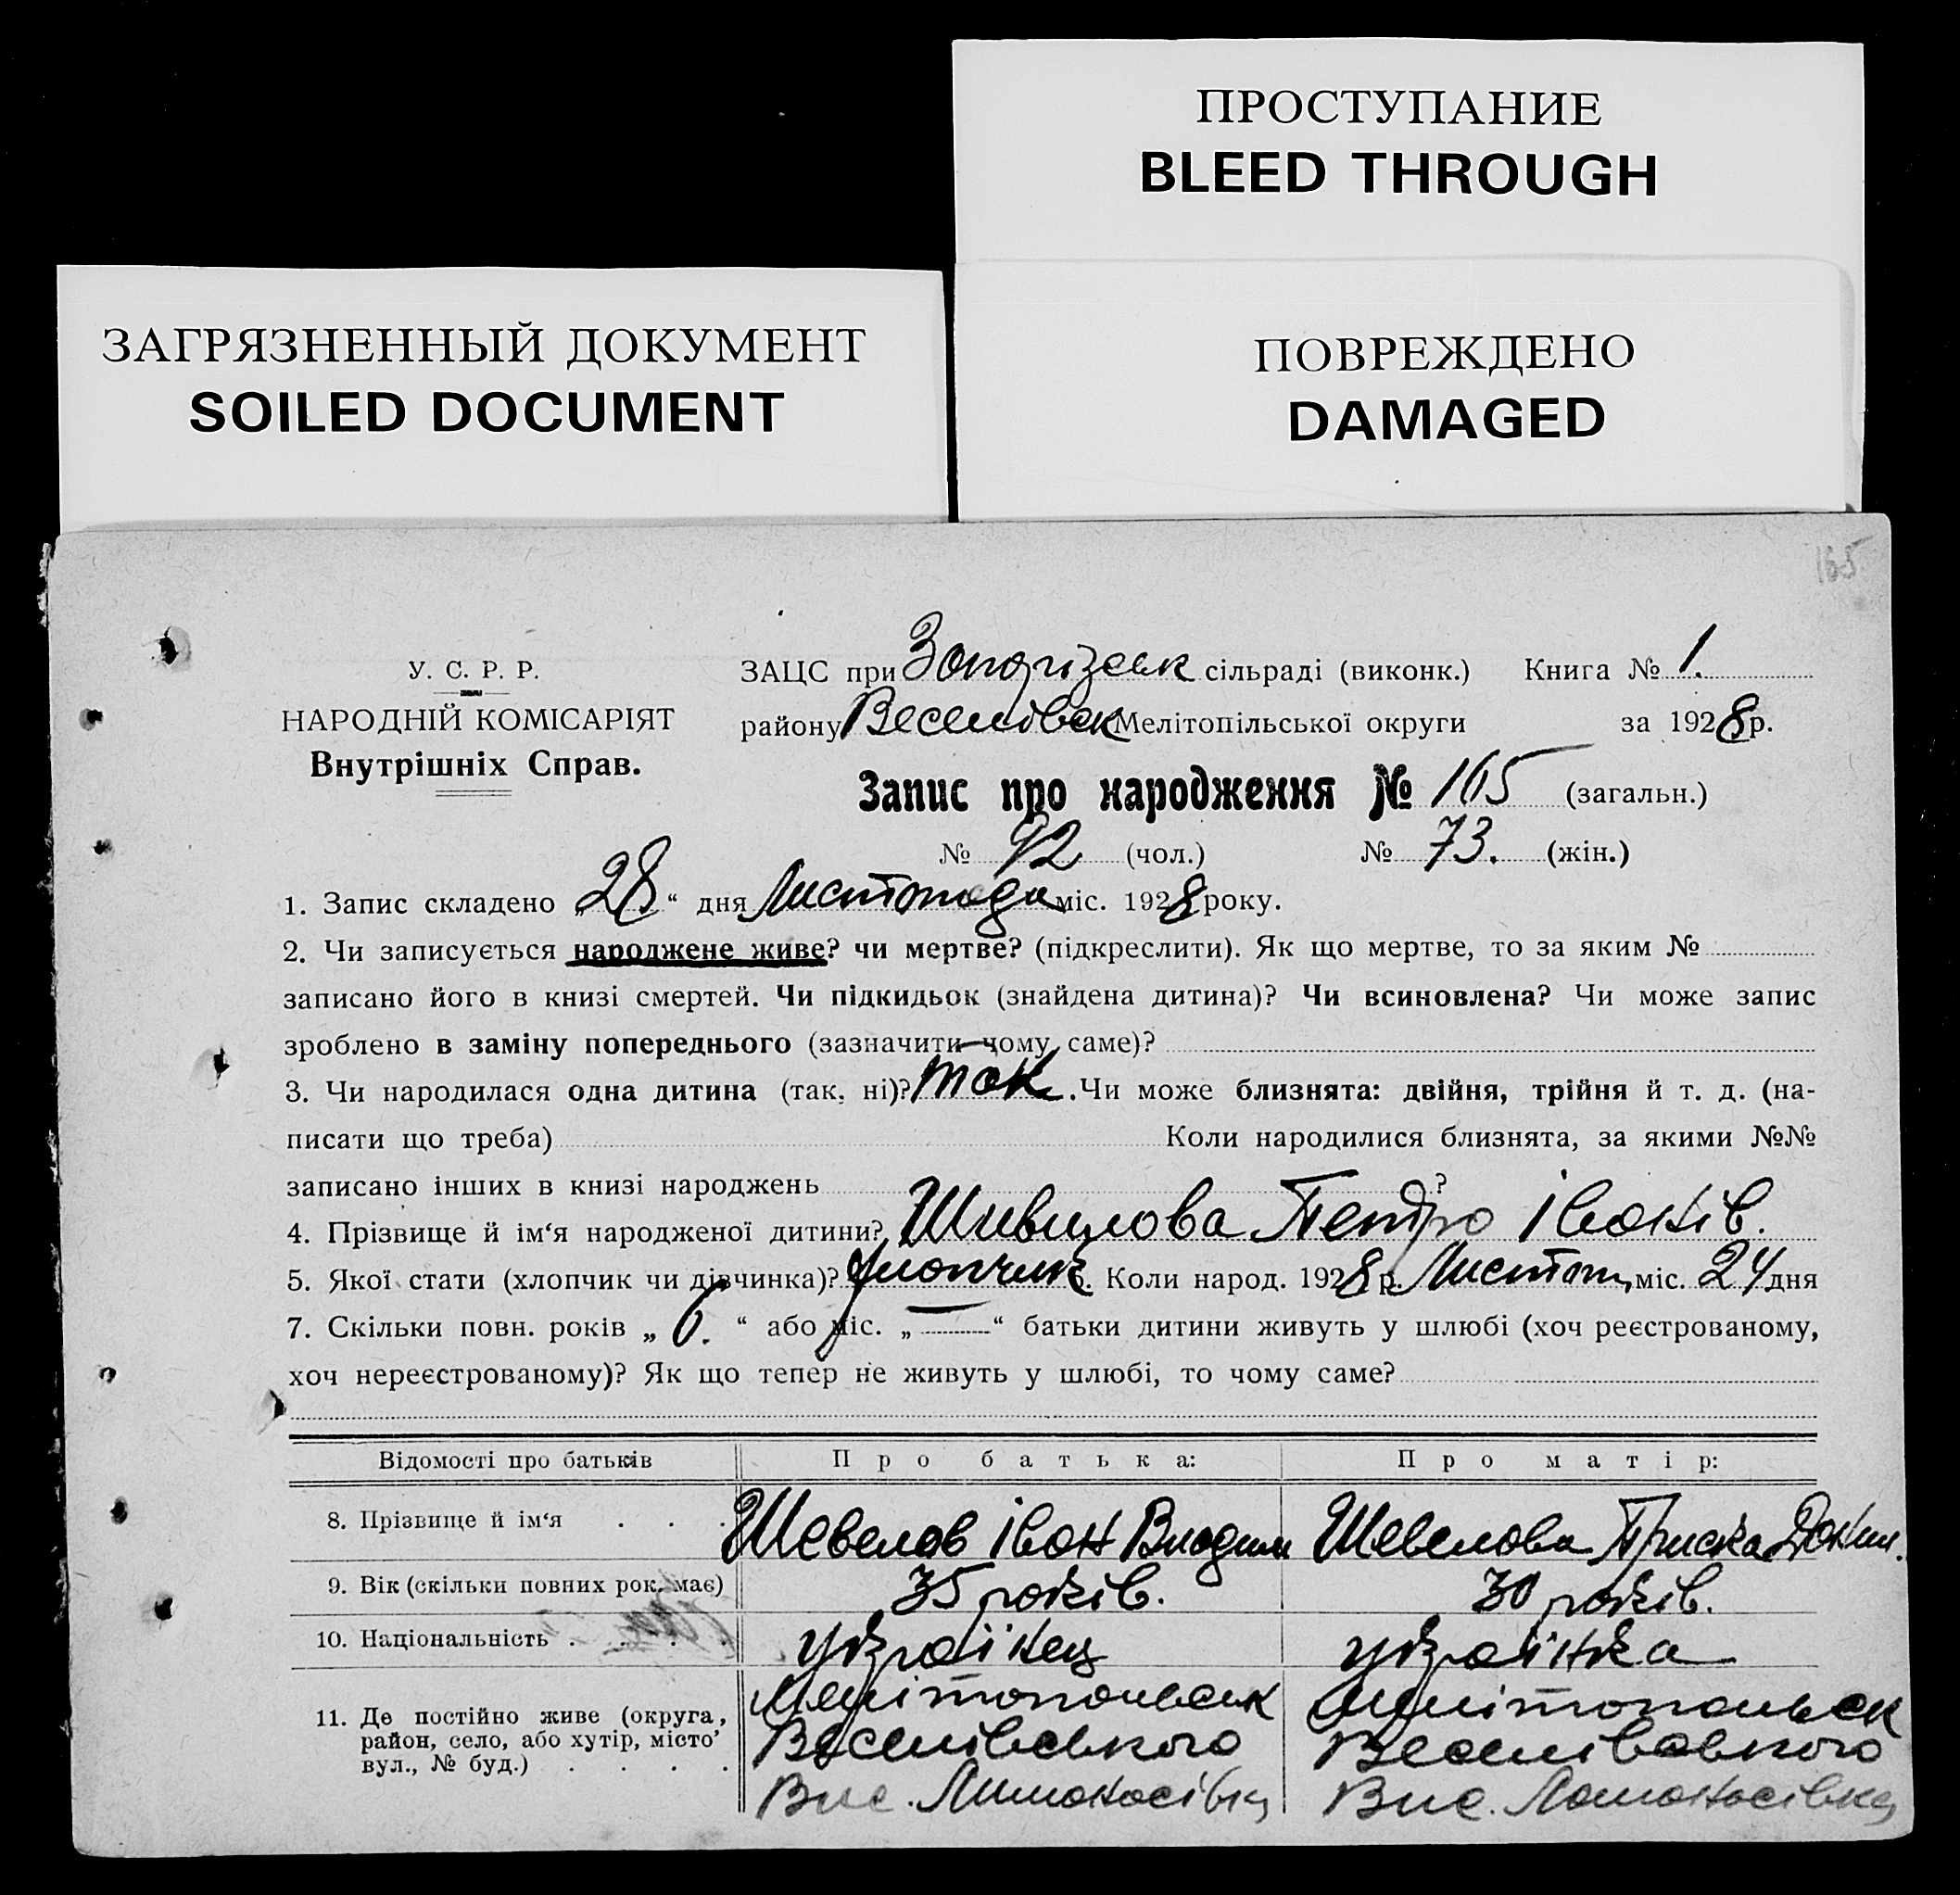 ПРОСТУПАНИЕ
BLEED THROUGH
ЗАГРЯЗНЕННЫЙ ДОКУМЕНТ
SOILED DOCUMENT
ПОВРЕЖДЕНО
DAMAGED
165
У. С. Р. Р.
НАРОДНІЙ КОМІСАРІЯТ
Внутрішніх Справ.
ЗАЦС при сільраді (виконк.) Книга № 1.
району Веселівськ Мелітопільської округи за 1928 р.
Запис про народження № 165 (загальн.)
№ 92 (чол.) № 73. (жін.)
1. Запис складено „28“ дня Листопада міс. 1928 року.
2. Чи записується народжене живе? чи мертве? (підкреслити). Як що мертве, то за яким №
записано його в книзі смертей. Чи підкидьок (знайдена дитина)? Чи всиновлена? Чи може запис
зроблено в заміну попереднього (зазначити чому саме)?
3. Чи народилася одна дитина (так, ні)? так. Чи може близнята: двійня, трійня й т. д. (на-
писати що треба) Коли народилися близнята, за якими №№
записано інших в книзі народжень ?
4. Прізвище й ім‘я народженої дитини? Петро Іванів.
5. Якої стати (хлопчик чи дівчинка)? хлопчик. Коли народ. 1928 р. Листоп, міс. 24 дня
7. Скільки повн. років „ 6. “ або міс. „ — “ батьки дитини живуть у шлюбі (хоч реєстрованому,
хоч нереєстрованому)? Як що тепер не живуть у шлюбі, то чому саме?
Відомості про батьків Про батька: Про матір:
8. Прізвище й ім‘я . . . Шевелов Іван Владим Шевелова Приська
9. Вік (скільки повних рок. має) 35 років. 30 років.
10. Національність . . . . українец українка
11. Де постійно живе (округа, район, село, або хутір, місто, вул., № буд.) . . . .
Мелітопольськ Мелітопольськ
Веселівського Веселівського
Вис. Вис. Ломоносівка